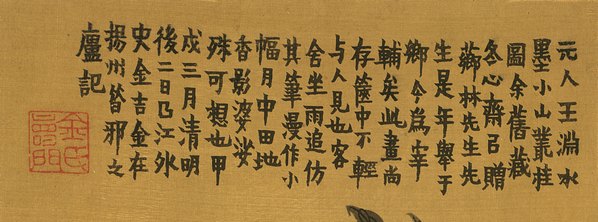 元人王淵水
墨小山叢桂
圖余舊藏
冬心齋㠯贈
薌林先生先
生是年舉于
鄉今為宰
輔矣此畫尚
存篋中不輕
与人見也客
舍坐雨追仿
其筆漫作小
幅月中田地
香影婆娑
殊可想也甲
戌三月清明
後二日乃江外
史金吉金在
揚州昔邪之
廬記
金氏